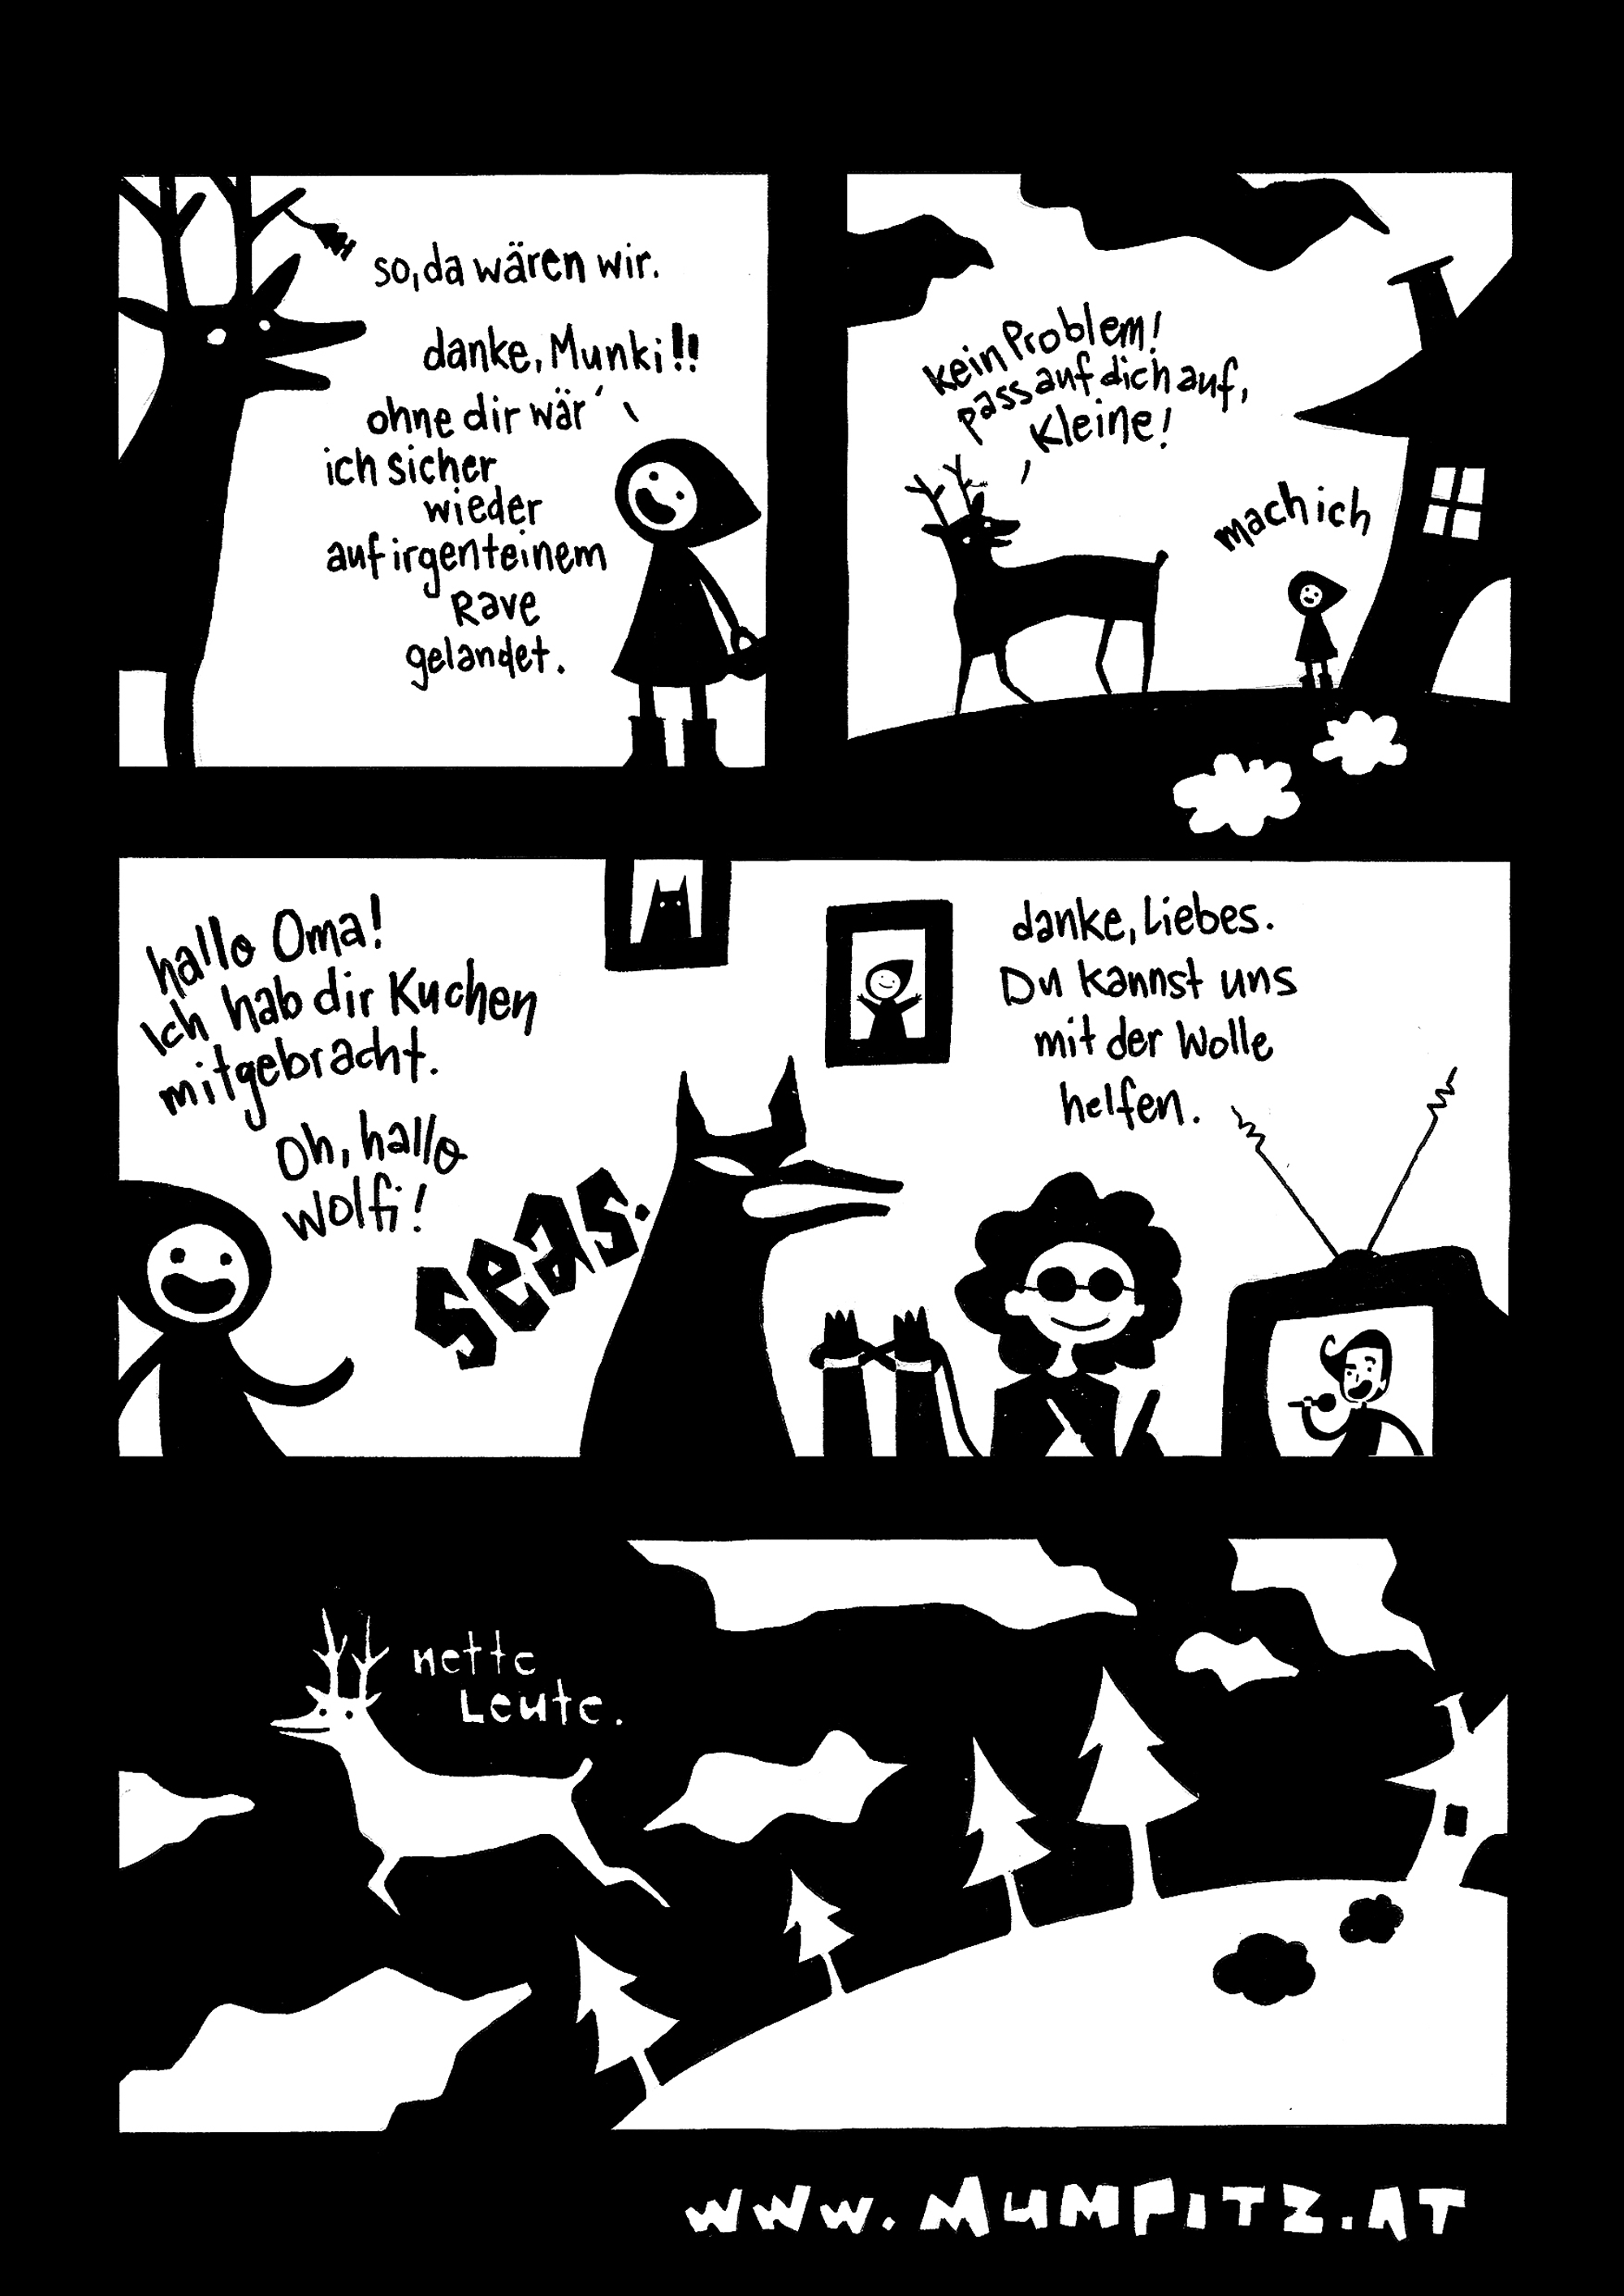 so, da wären wir.
danke, Munki!!
ohne dir wär'
ich sicher
wieder
auf irgenteinem
Rave
gelandet.
kein Problem!
pass auf dich auf,
Kleine!
mach ich
hallo Oma!
Ich hab dir Kuchen
mitgebracht.
Oh, hallo
Wolfi!
seas.
danke, Liebes.
Du kannst uns
mit der Wolle
helfen.
nette
Leute.
WWW.MUMPITZ.AT